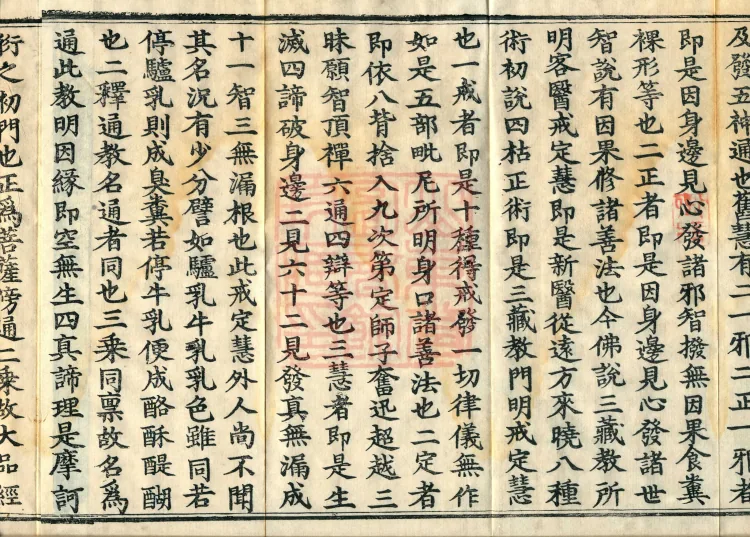 及發五神通也舊慧有二一邪二正一邪者
即是因身邊見心發諸邪智撥無因果食糞
裸形等也二正者即是因身邊見心發諸世
智說有因果修諸善法也今佛說三藏教所
明客醫戒定慧即是新醫從遠方來曉八種
術初說四枯正術即是三藏教門明戒定慧
也一戒者即是十種得戒發一切律儀無作
如是五部毗尼所明身口諸善法也二定者
即依八背捨入九次第定師子奮迅超越三
昧願智頂禪六通四辯等也三慧者即是生
滅四諦破身邊二見六十二見發真無漏成
十一智三無漏根也此戒定慧外人尚不聞
其名況有少分譬如驢乳牛乳乳色雖同若
停驢乳則成臭糞若停牛乳便成酪酥醍醐
也二釋通教名通者同也三乘同稟故名為
通此教明因緣即空無生四真諦理是摩訶
衍之初門也正為菩薩傍通二乘故大品經